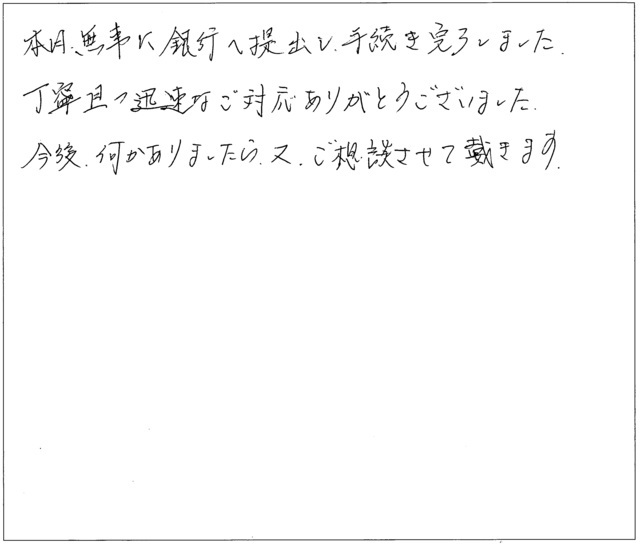 本日、無事に銀行へ提出し、手続き完了しました。
丁寧且つ迅速なご対応ありがとうございました。
今後、何かありましたら、又、ご相談させて戴きます。